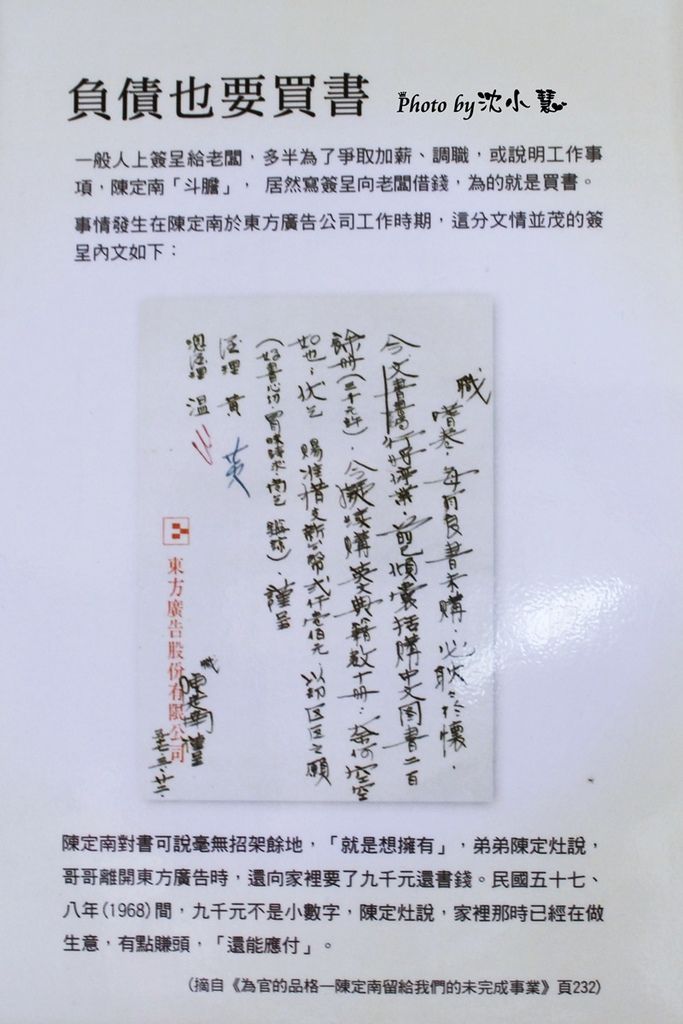 負債也要買書
Photo by 沈小慧
一般人上簽呈給老闆，多半為了爭取加薪、調職，或說明工作事
項，陳定南「斗膽」， 居然寫簽呈向老闆借錢，為的就是買書。
事情發生在陳定南於東方廣告公司工作時期，這分文情並茂的簽
呈內文如下：
職
嗜卷，每有良書未購，必耿耿於懷，
今文書書局
前已傾囊括購中文圖書二百
餘冊(三千元許)，今擬續購英文典籍數十冊，奈何空空
如也，伏乞 賜准借支新台幣貳仟壹佰元，以初区区之願
謹呈
經理 黃
總經理 溫
東方廣告股份有限公司
職
陳定南 謹呈
五七、三、廿二、
陳定南對書可說毫無招架餘地，「就是想擁有」，弟弟陳定灶說，
哥哥離開東方廣告時，還向家裡要了九千元還書錢。民國五十七、
八年(1968)間，九千元不是小數字，陳定灶說，家裡那時已經在做
生意，有點賺頭，「還能應付」。
(摘自《為官的品格—陳定南留給我們的未完成事業》頁232)